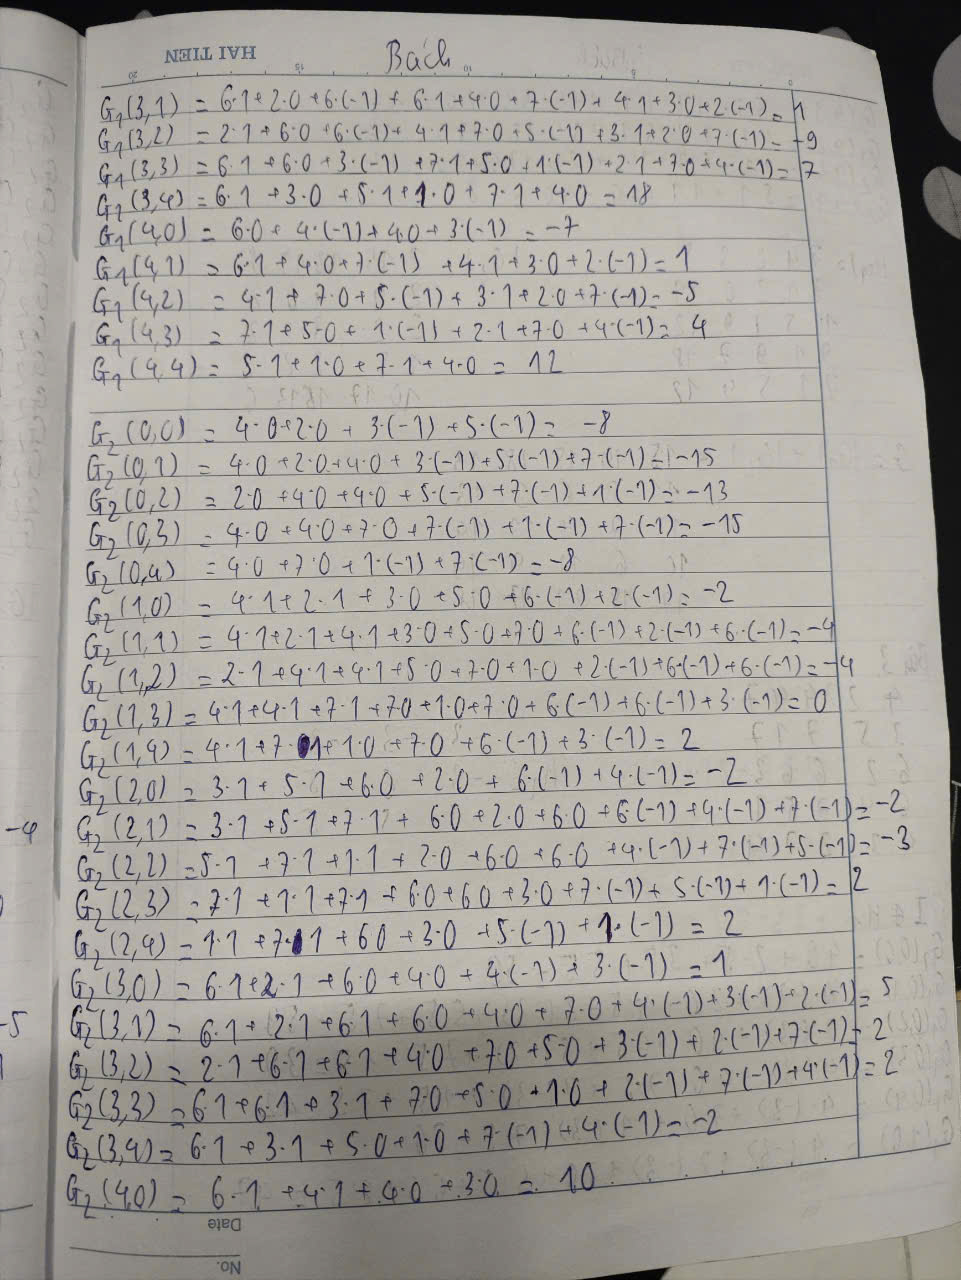 HAI TIEN
Bách
20 15 10 5 0
G₁(3,1) = 6·1+2·0+6·(-1)+6·1+4·0+7·(-1)+4·1+3·0+2·(-1)=1
G₁(3,2) = 2·1+6·0+6·(-1)+4·1+7·0+5·(-1)+3·1+2·0+7·(-1)=-9
G₁(3,3) = 6·1+6·0+3·(-1)+7·1+5·0+1·(-1)+2·1+7·0+4·(-1)=7
G₁(3,4) = 6·1+3·0+5·1+1·0+7·1+4·0=18
G₁(4,0) = 6·0+4·(-1)+4·0+3·(-1)=-7
G₁(4,1) = 6·1+4·0+7·(-1)+4·1+3·0+2·(-1)=1
G₁(4,2) = 4·1+7·0+5·(-1)+3·1+2·0+7·(-1)=-5
G₁(4,3) = 7·1+5·0+1·(-1)+2·1+7·0+4·(-1)=4
G₁(4,4) = 5·1+1·0+7·1+4·0=12
G₂(0,0) = 4·0+2·0+3·(-1)+5·(-1)=-8
G₂(0,1) = 4·0+2·0+4·0+3·(-1)+5·(-1)+7·(-1)=-15
G₂(0,2) = 2·0+4·0+4·0+5·(-1)+7·(-1)+1·(-1)=-13
G₂(0,3) = 4·0+4·0+7·0+7·(-1)+1·(-1)+7·(-1)=-15
G₂(0,4) = 4·0+7·0+1·(-1)+7·(-1)=-8
G₂(1,0) = 4·1+2·1+3·0+5·0+6·(-1)+2·(-1)=-2
G₂(1,1) = 4·1+2·1+4·1+3·0+5·0+7·0+6·(-1)+2·(-1)+6·(-1)=-4
G₂(1,2) = 2·1+4·1+4·1+5·0+7·0+1·0+2·(-1)+6·(-1)+6·(-1)=-4
G₂(1,3) = 4·1+4·1+7·1+7·0+1·0+7·0+6·(-1)+6·(-1)+3·(-1)=0
G₂(1,4) = 4·1+7·1+1·0+7·0+6·(-1)+3·(-1)=2
G₂(2,0) = 3·1+5·1+6·0+2·0+6·(-1)+4·(-1)=-2
G₂(2,1) = 3·1+5·1+7·1+6·0+2·0+6·0+6·(-1)+4·(-1)+7·(-1)=-2
G₂(2,2) = 5·1+7·1+1·1+2·0+6·0+6·0+4·(-1)+7·(-1)+5·(-1)=-3
G₂(2,3) = 7·1+1·1+7·1+6·0+6·0+3·0+7·(-1)+5·(-1)+1·(-1)=2
G₂(2,4) = 1·1+7·1+6·0+3·0+5·(-1)+1·(-1)=2
G₂(3,0) = 6·1+2·1+6·0+4·0+4·(-1)+3·(-1)=1
G₂(3,1) = 6·1+2·1+6·1+6·0+4·0+7·0+4·(-1)+3·(-1)+2·(-1)=5
G₂(3,2) = 2·1+6·1+6·1+4·0+7·0+5·0+3·(-1)+2·(-1)+7·(-1)=2
G₂(3,3) = 6·1+6·1+3·1+7·0+5·0+1·0+2·(-1)+7·(-1)+4·(-1)=2
G₂(3,4) = 6·1+3·1+5·0+1·0+7·(-1)+4·(-1)=-2
G₂(4,0) = 6·1+4·1+4·0+3·0=10
Date
No.
-4
-5